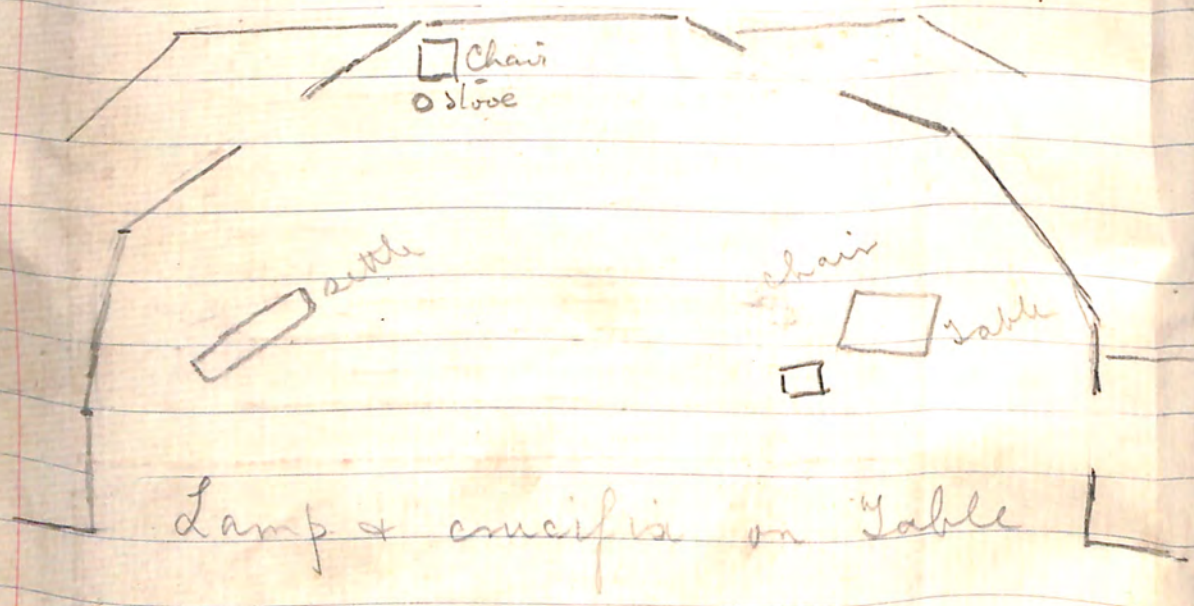 Chair
stove
settle
chair
Table
Lamp & crucifix on Table